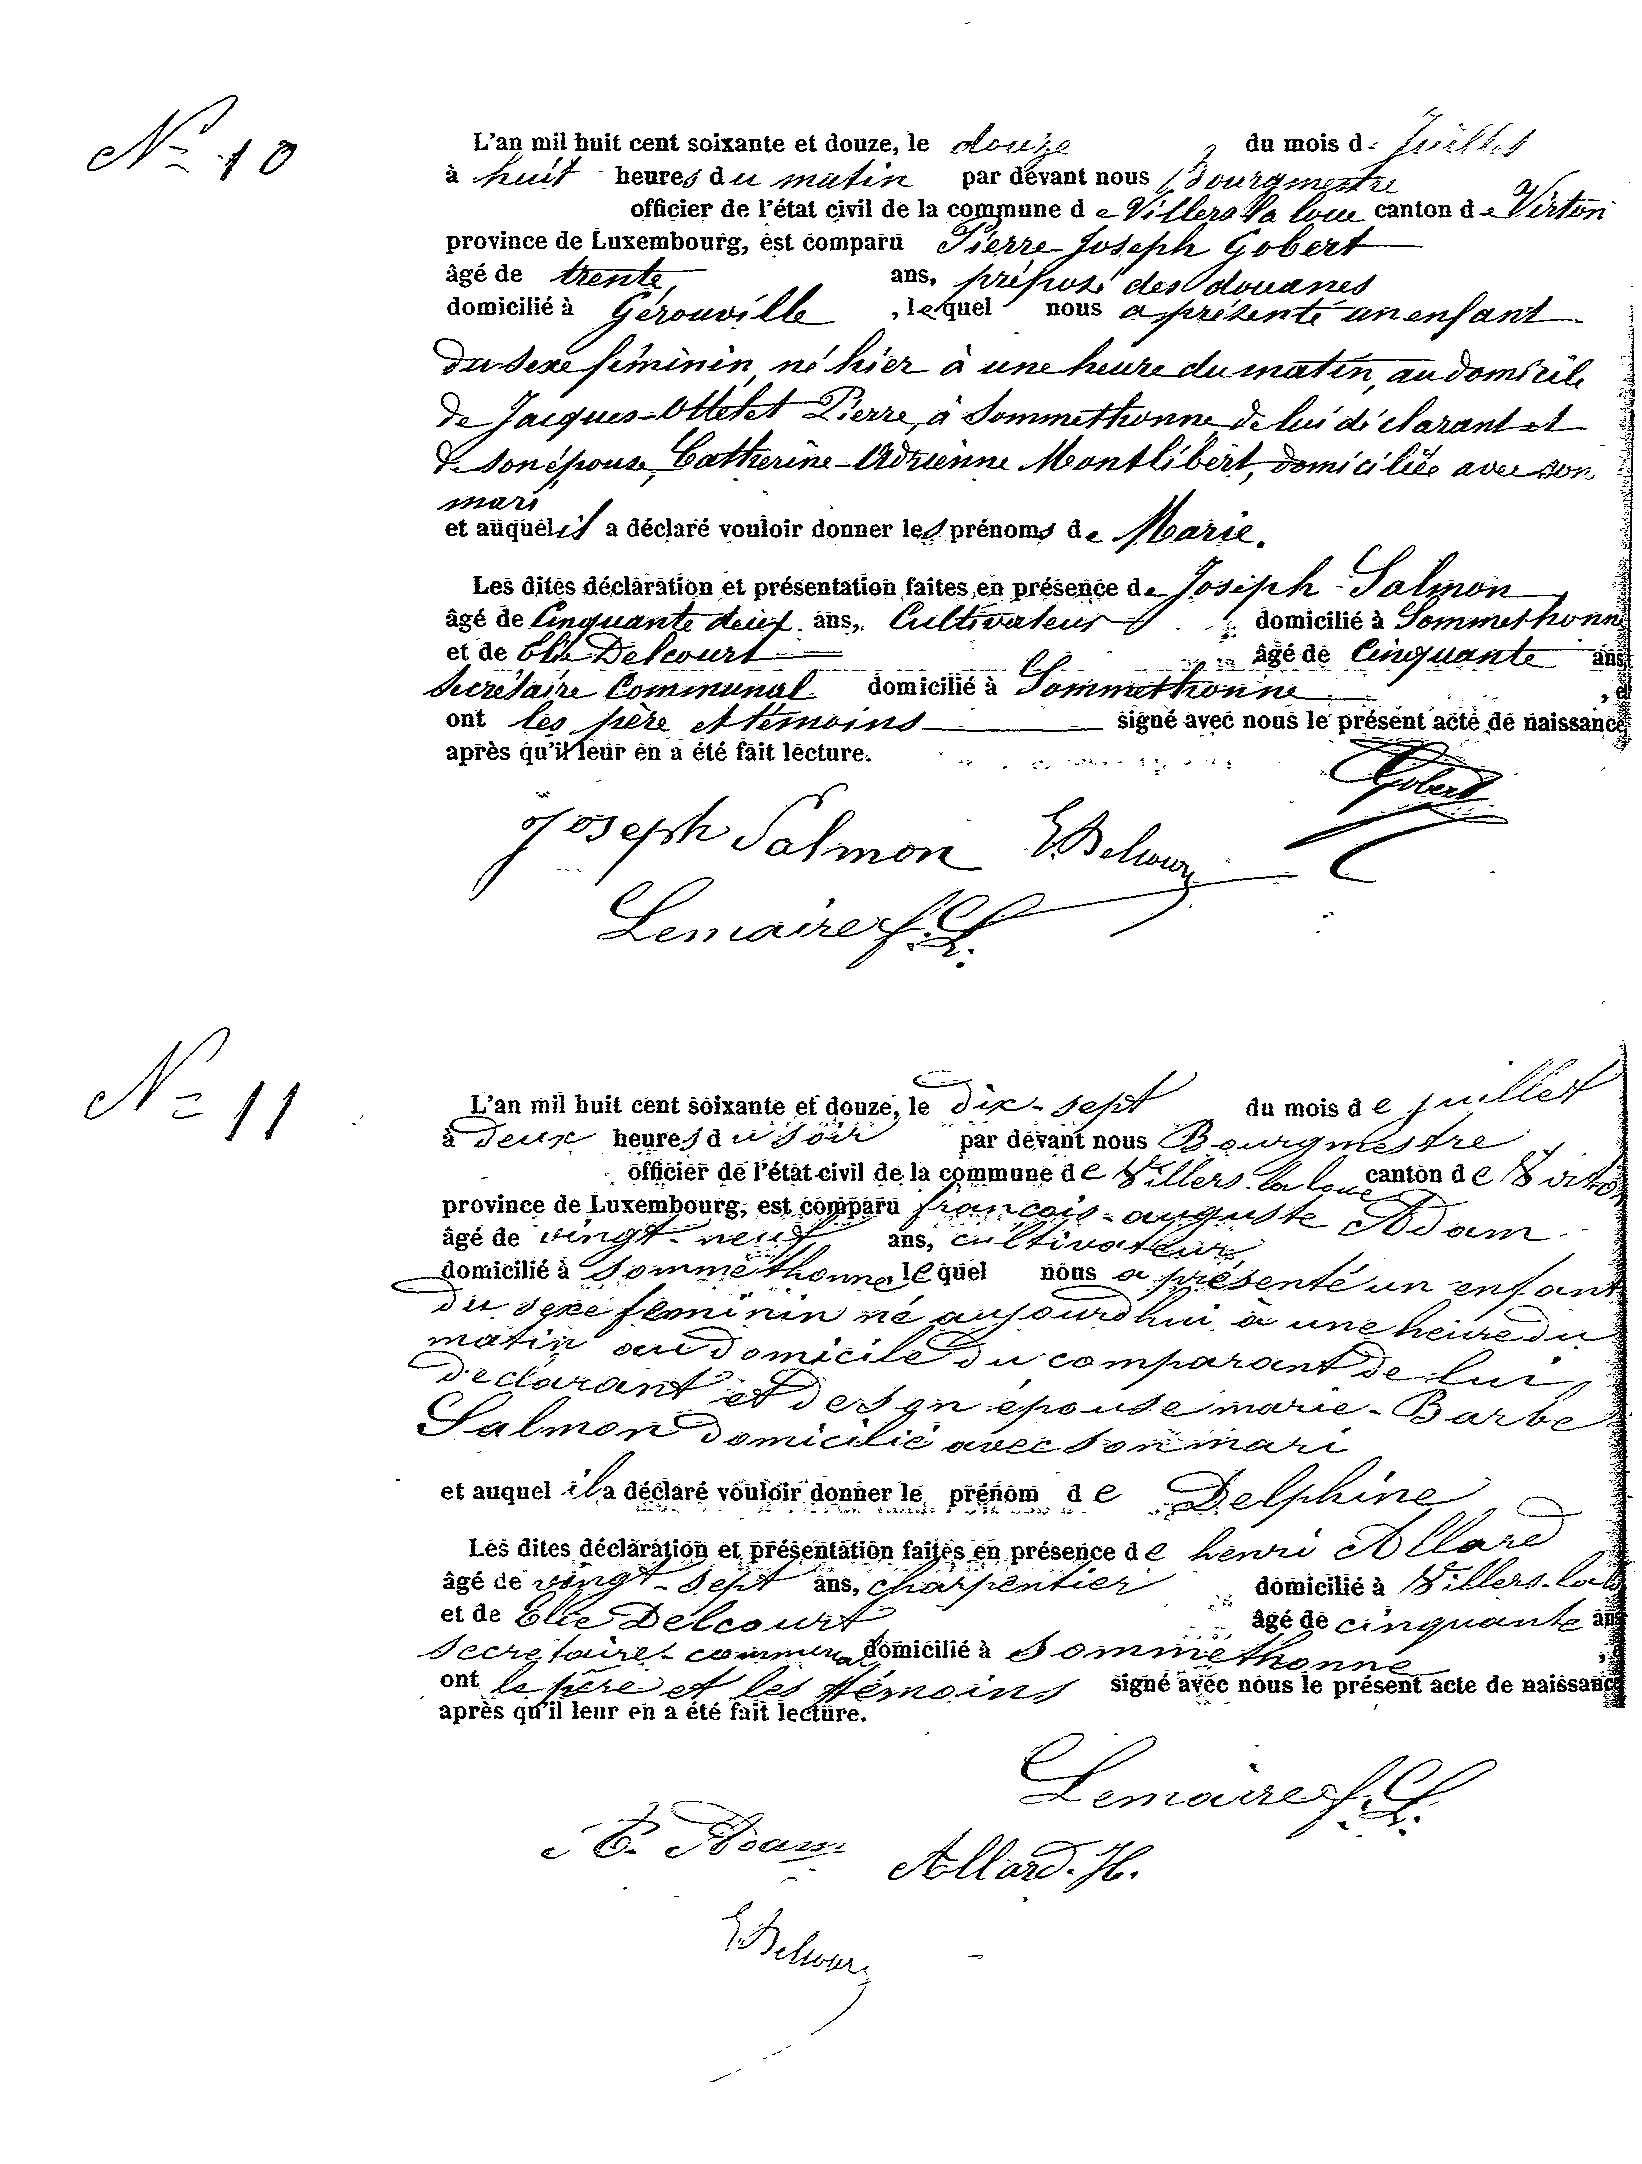 N° 10
L'an mil huit cent soixante et douze, le douze du mois de Juillet
à huit heures du matin par devant nous Bourgmestre
officier de l'état civil de la commune de Villers la loue canton de Virton
province de Luxembourg, est comparu Pierre Joseph Gobert
âgé de trente ans, préposé des douanes
domicilié à Gérouville, lequel nous a présenté un enfant
du sexe féminin, né hier à une heure du matin, au domicile
de Jacques-Ottelet Pierre, à Sommethonne de lui déclarant et
de son épouse, Catherine-Adrienne Montlibert, domiciliée avec son
mari
et auquel il a déclaré vouloir donner les prénoms de Marie.
Les dites déclaration et présentation faites en présence de Joseph Salmon
âgé de Cinquante deux ans, Cultivateur domicilié à Sommethonne
et de Elie Delcourt âgé de Cinquante ans
Secrétaire Communal domicilié à Sommethonne, et
ont les père et témoins signé avec nous le présent acte de naissance
après qu'il leur en a été fait lecture.
Gobert
Joseph Salmon E. Delcour
Lemaire f. L.
N° 11
L'an mil huit cent soixante et douze, le dix-sept du mois de juillet
à deux heures du soir par devant nous Bourgmestre
officier de l'état civil de la commune de Villers-la loue canton de Virton
province de Luxembourg, est comparu françois-auguste Adam
âgé de vingt-neuf ans, cultivateur
domicilié à Sommethonne lequel nous a présenté un enfant
du sexe feminin né aujourdhui à une heure du
matin au domicile du comparant de lui
declarant et de son épouse marie-Barbe
Salmon domicilié avec son mari
et auquel il a déclaré vouloir donner le prénom de Delphine
Les dites déclaration et présentation faites en présence de henri Allard
âgé de vingt-sept ans, charpentier domicilié à Villers-la
et de Elie Delcourt âgé de cinquante ans
secretaire communal domicilié à Sommethonne
ont le père et les témoins signé avec nous le présent acte de naissance
après qu'il leur en a été fait lecture.
Lemaire f. L.
Adam
Allard. H.
E. Delcour